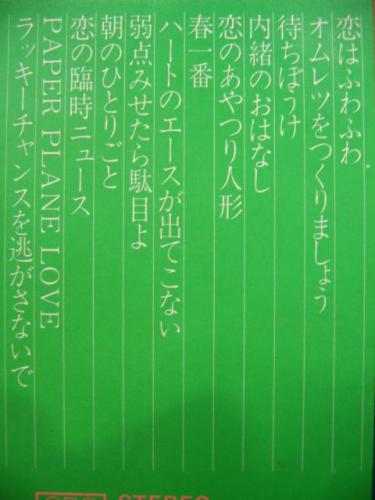 恋はふわふわ
オムレツをつくりましょう
待ちぼうけ
内緒のおはなし
恋のあやつり人形
春一番
ハートのエースが出てこない
弱点みせたら駄目よ
朝のひとりごと
恋の臨時ニュース
PAPER PLANE LOVE
ラッキーチャンスを逃がさないで
STEREO